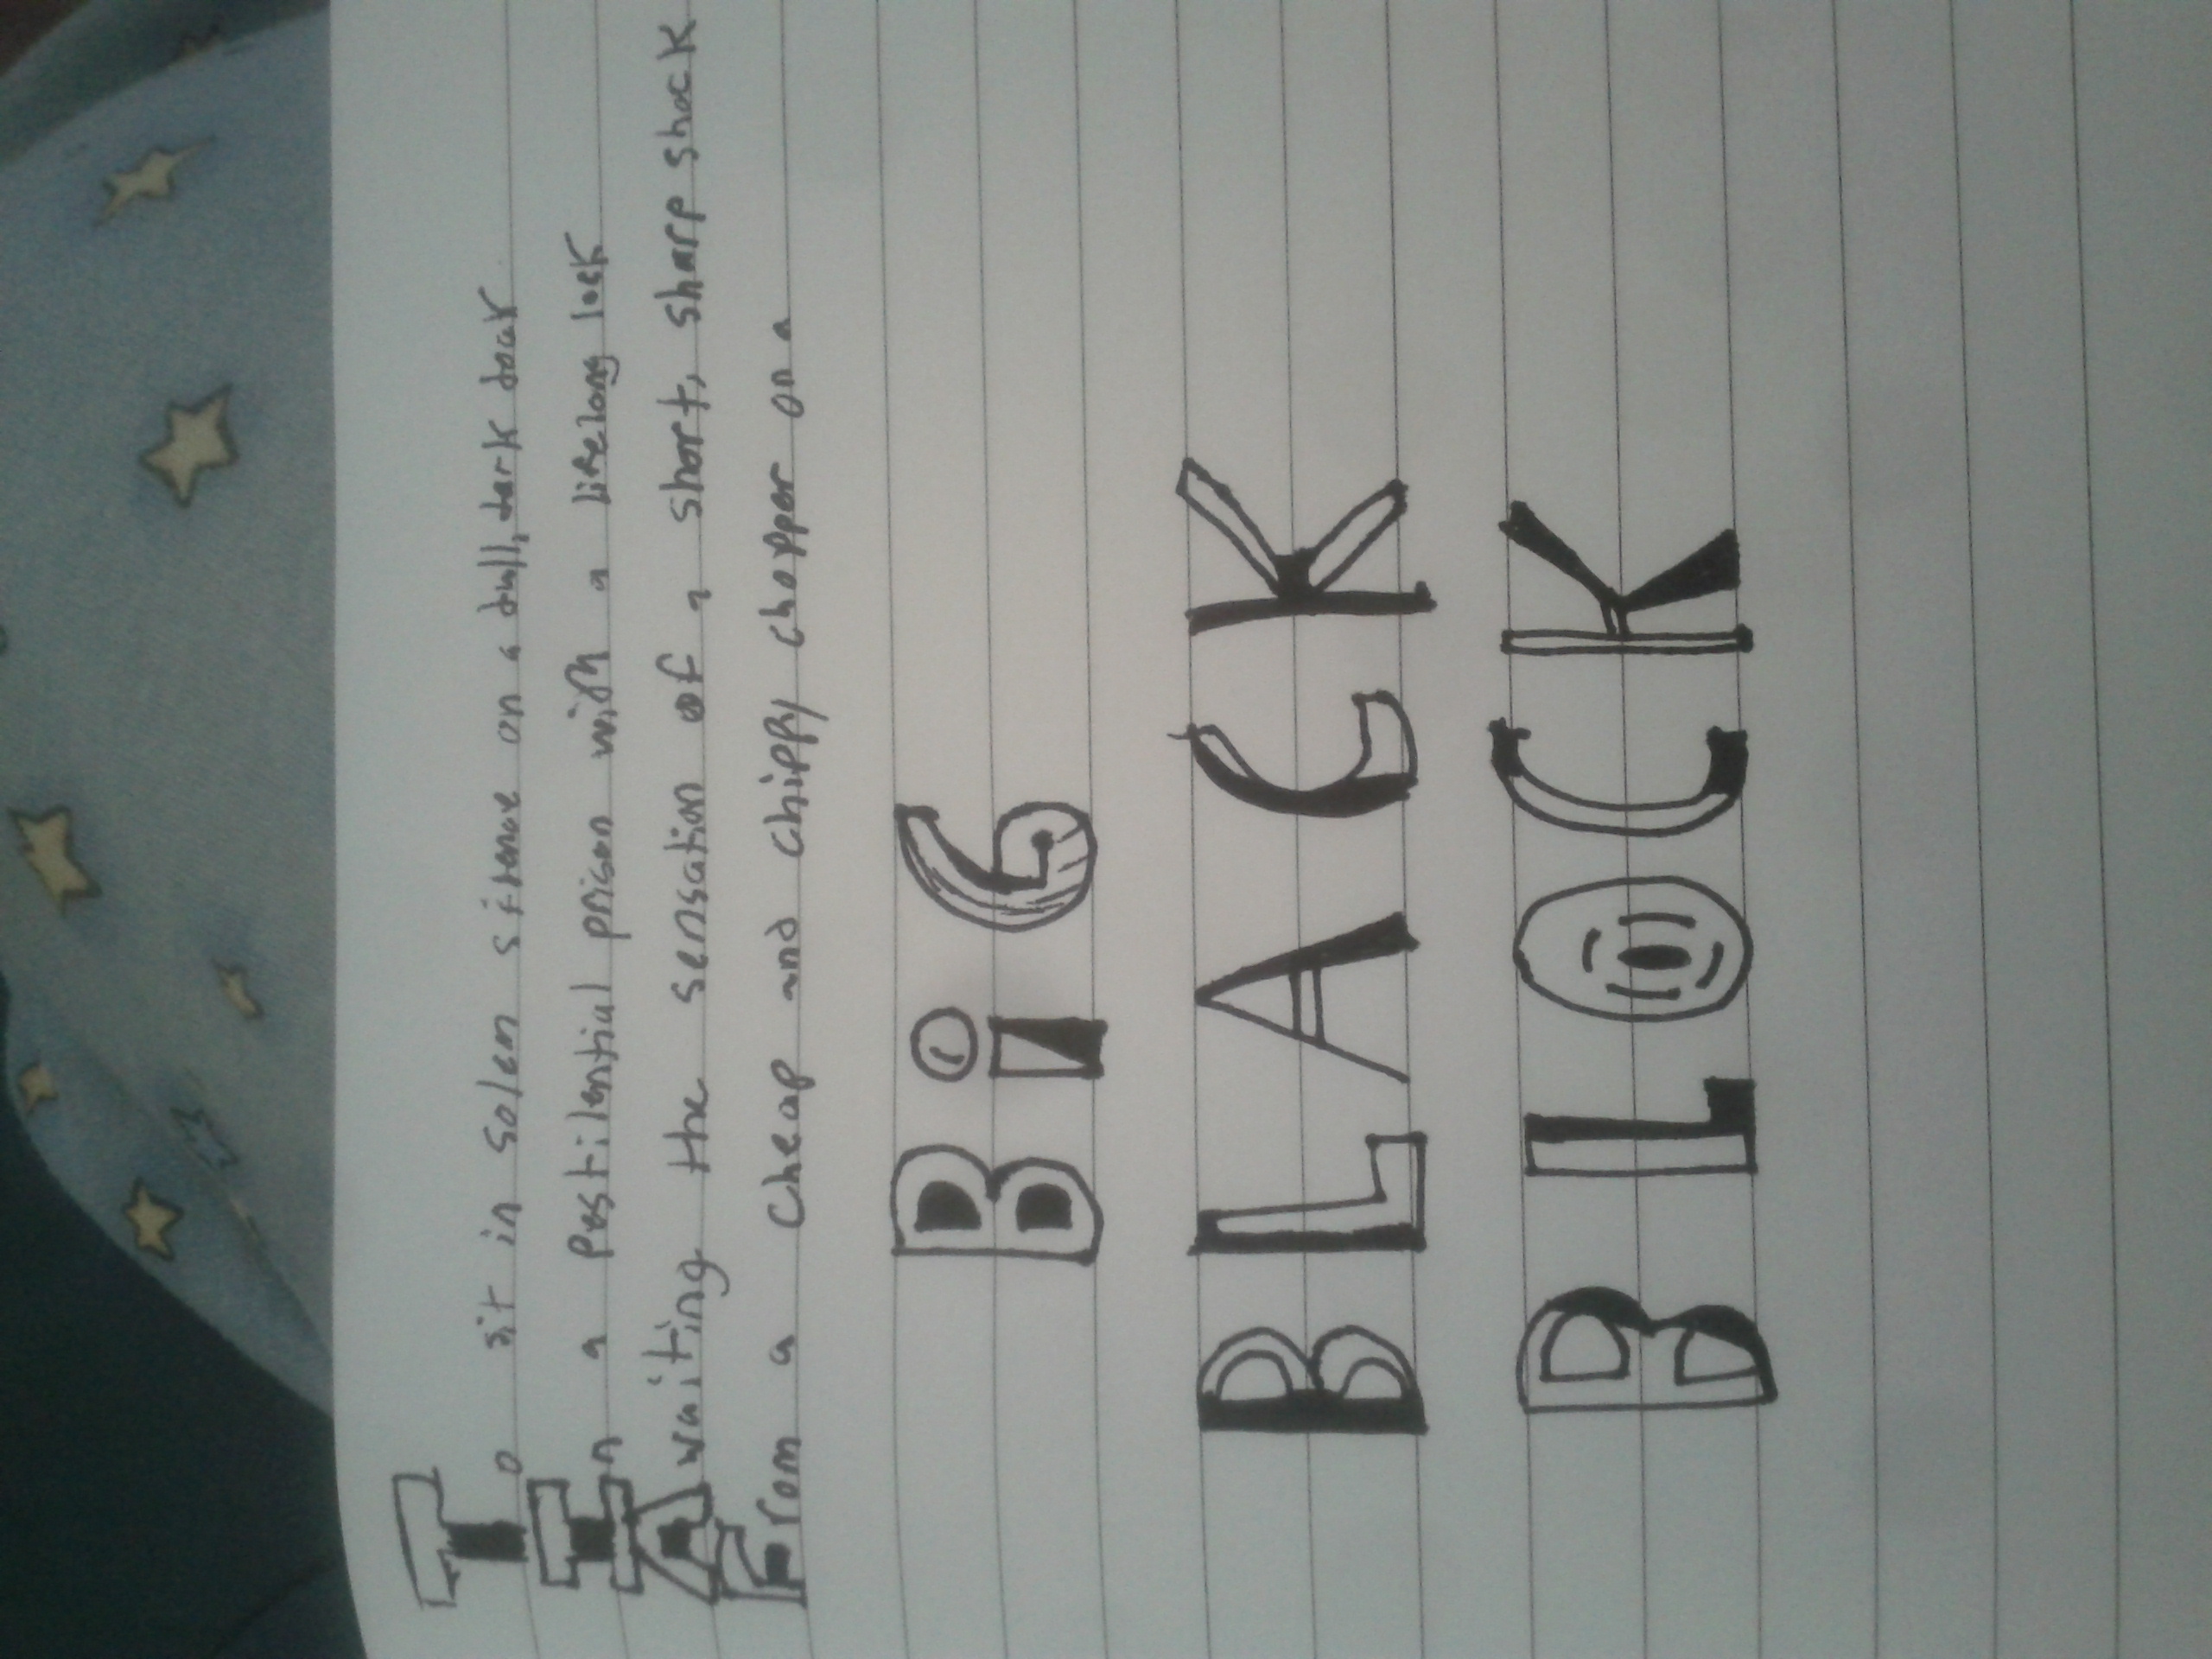 To sit in solem silence on a dull, dark doar
In a pestilential prison with a lifelong lock
Awaiting the sensation of a short, sharp shock
From a cheap and chippy chopper on a
BiG
BLACK
BLOCK